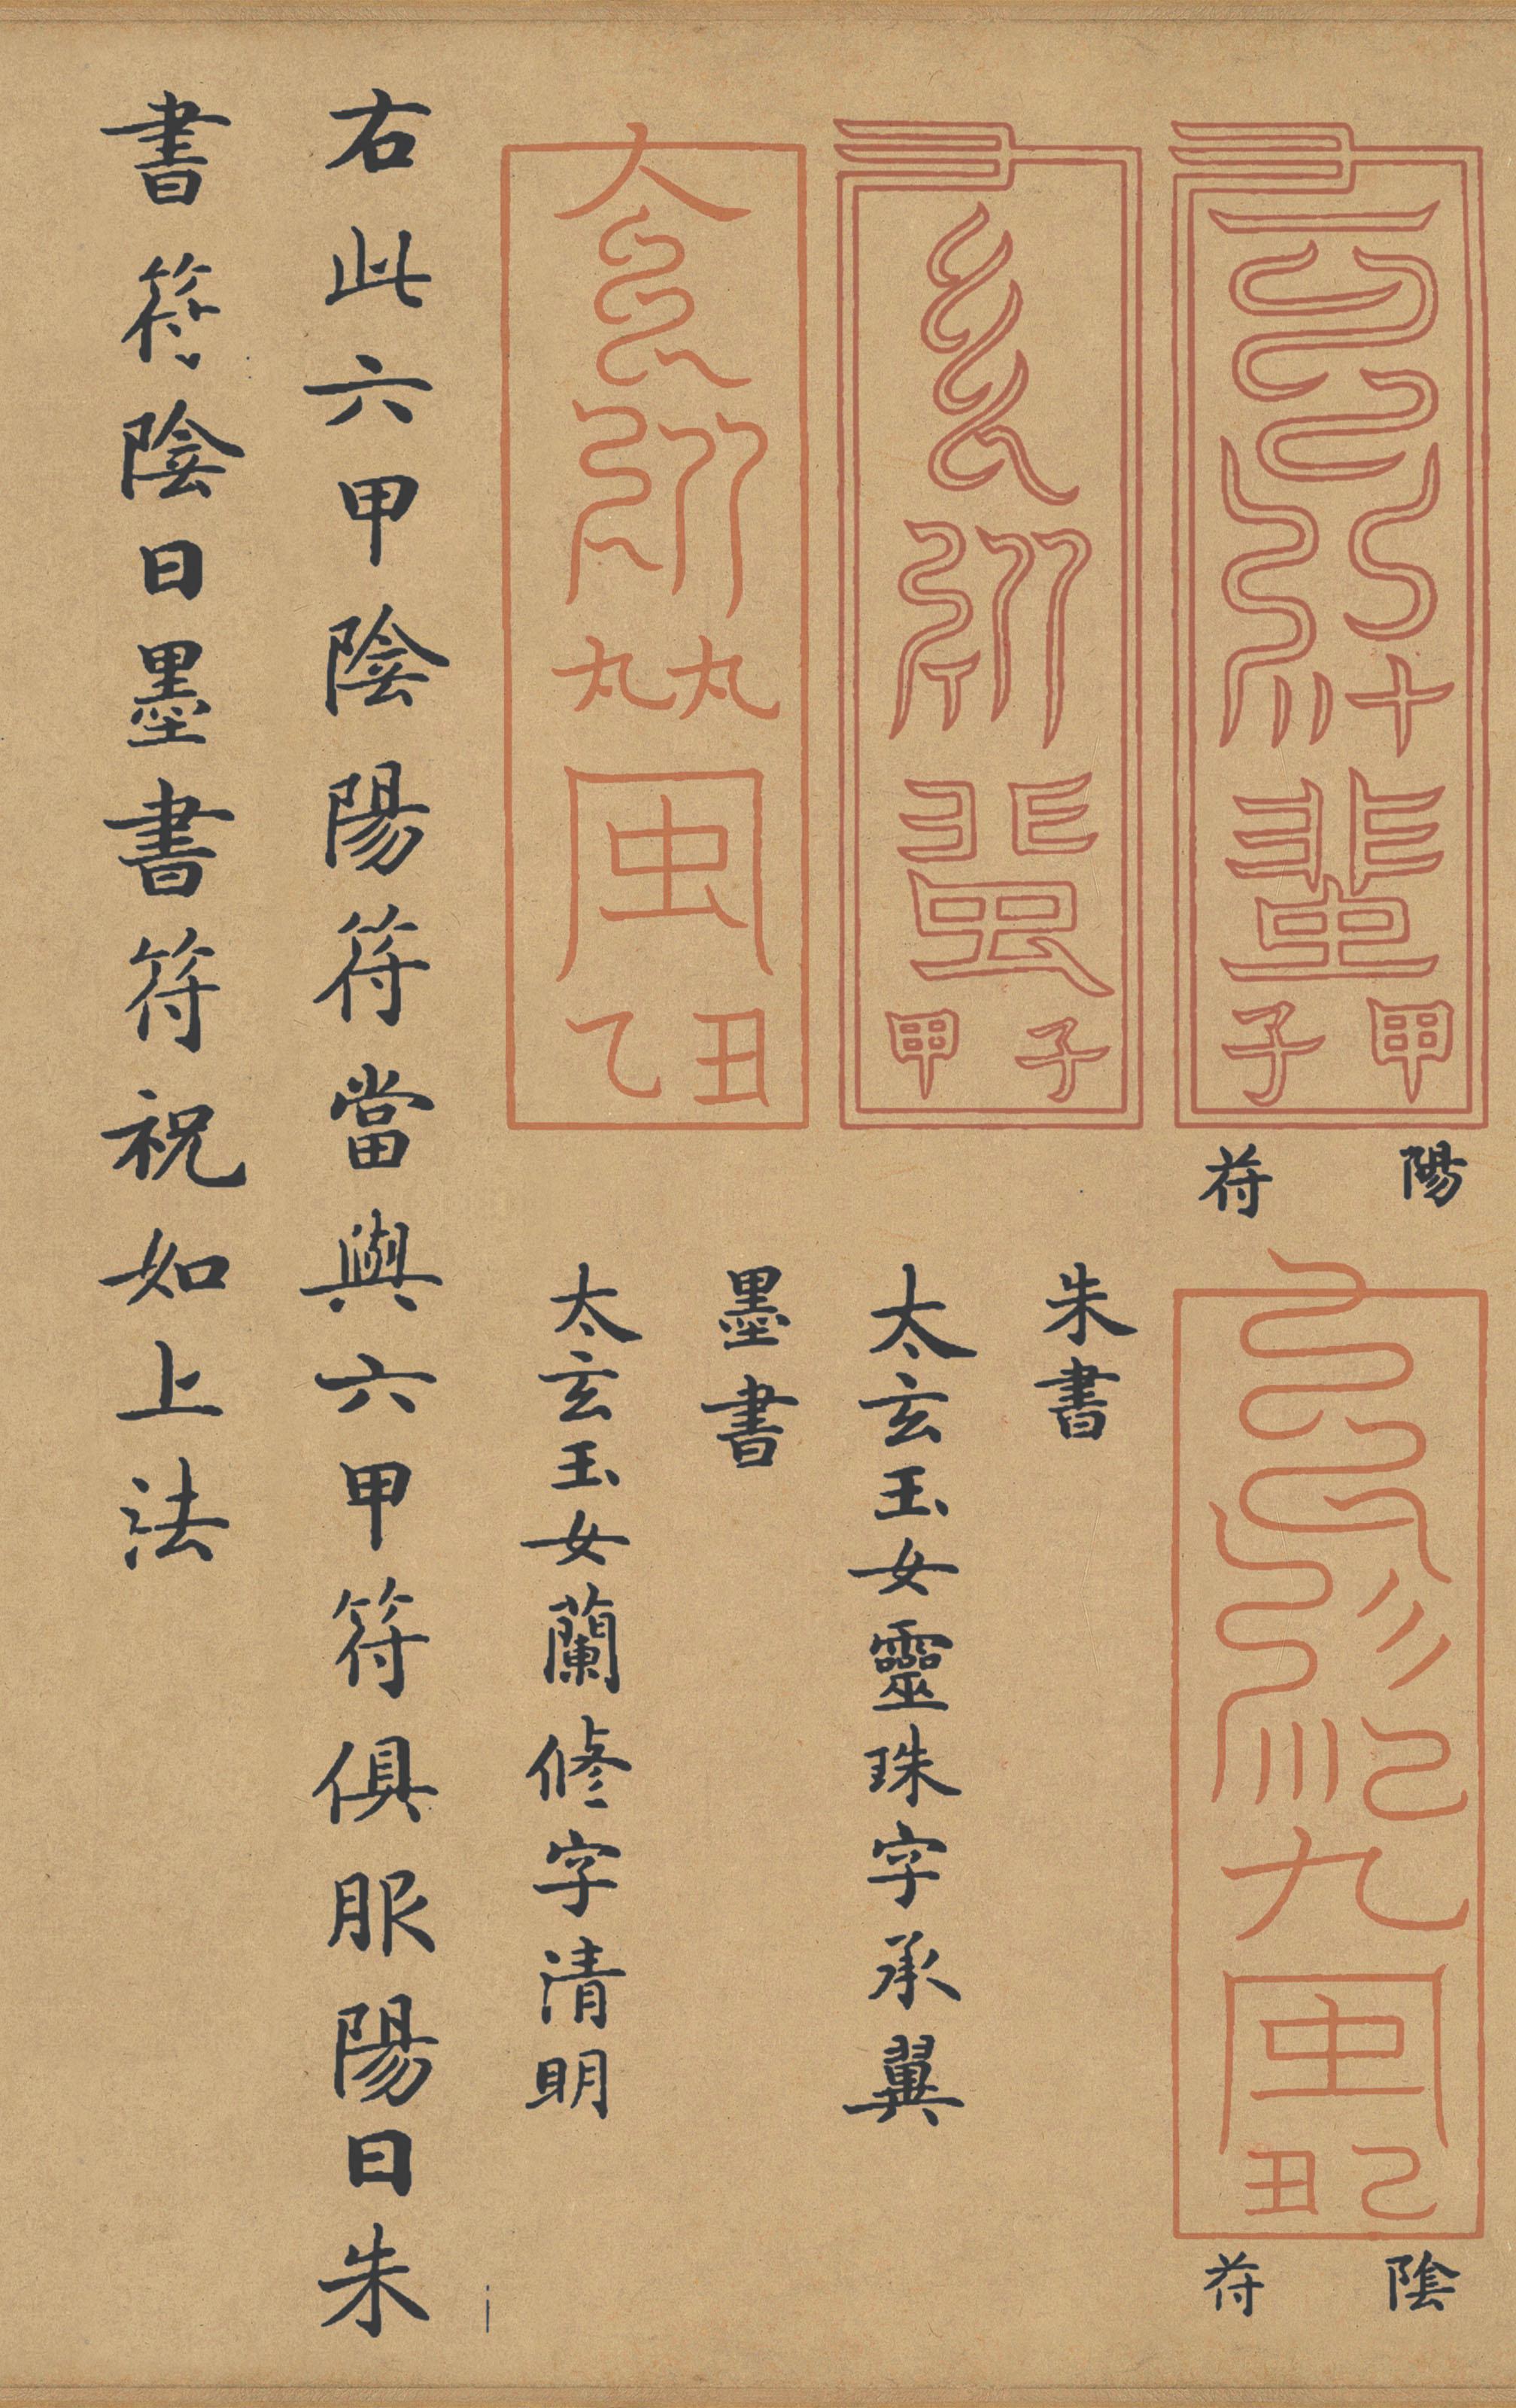 甲子
陽符
己丑
陰符
甲子
朱書
太玄玉女靈珠字承翼
乙丑
墨書
太玄玉女蘭修字清明
右此六甲陰陽符當與六甲符俱服陽日朱
書符陰日墨書符祝如上法